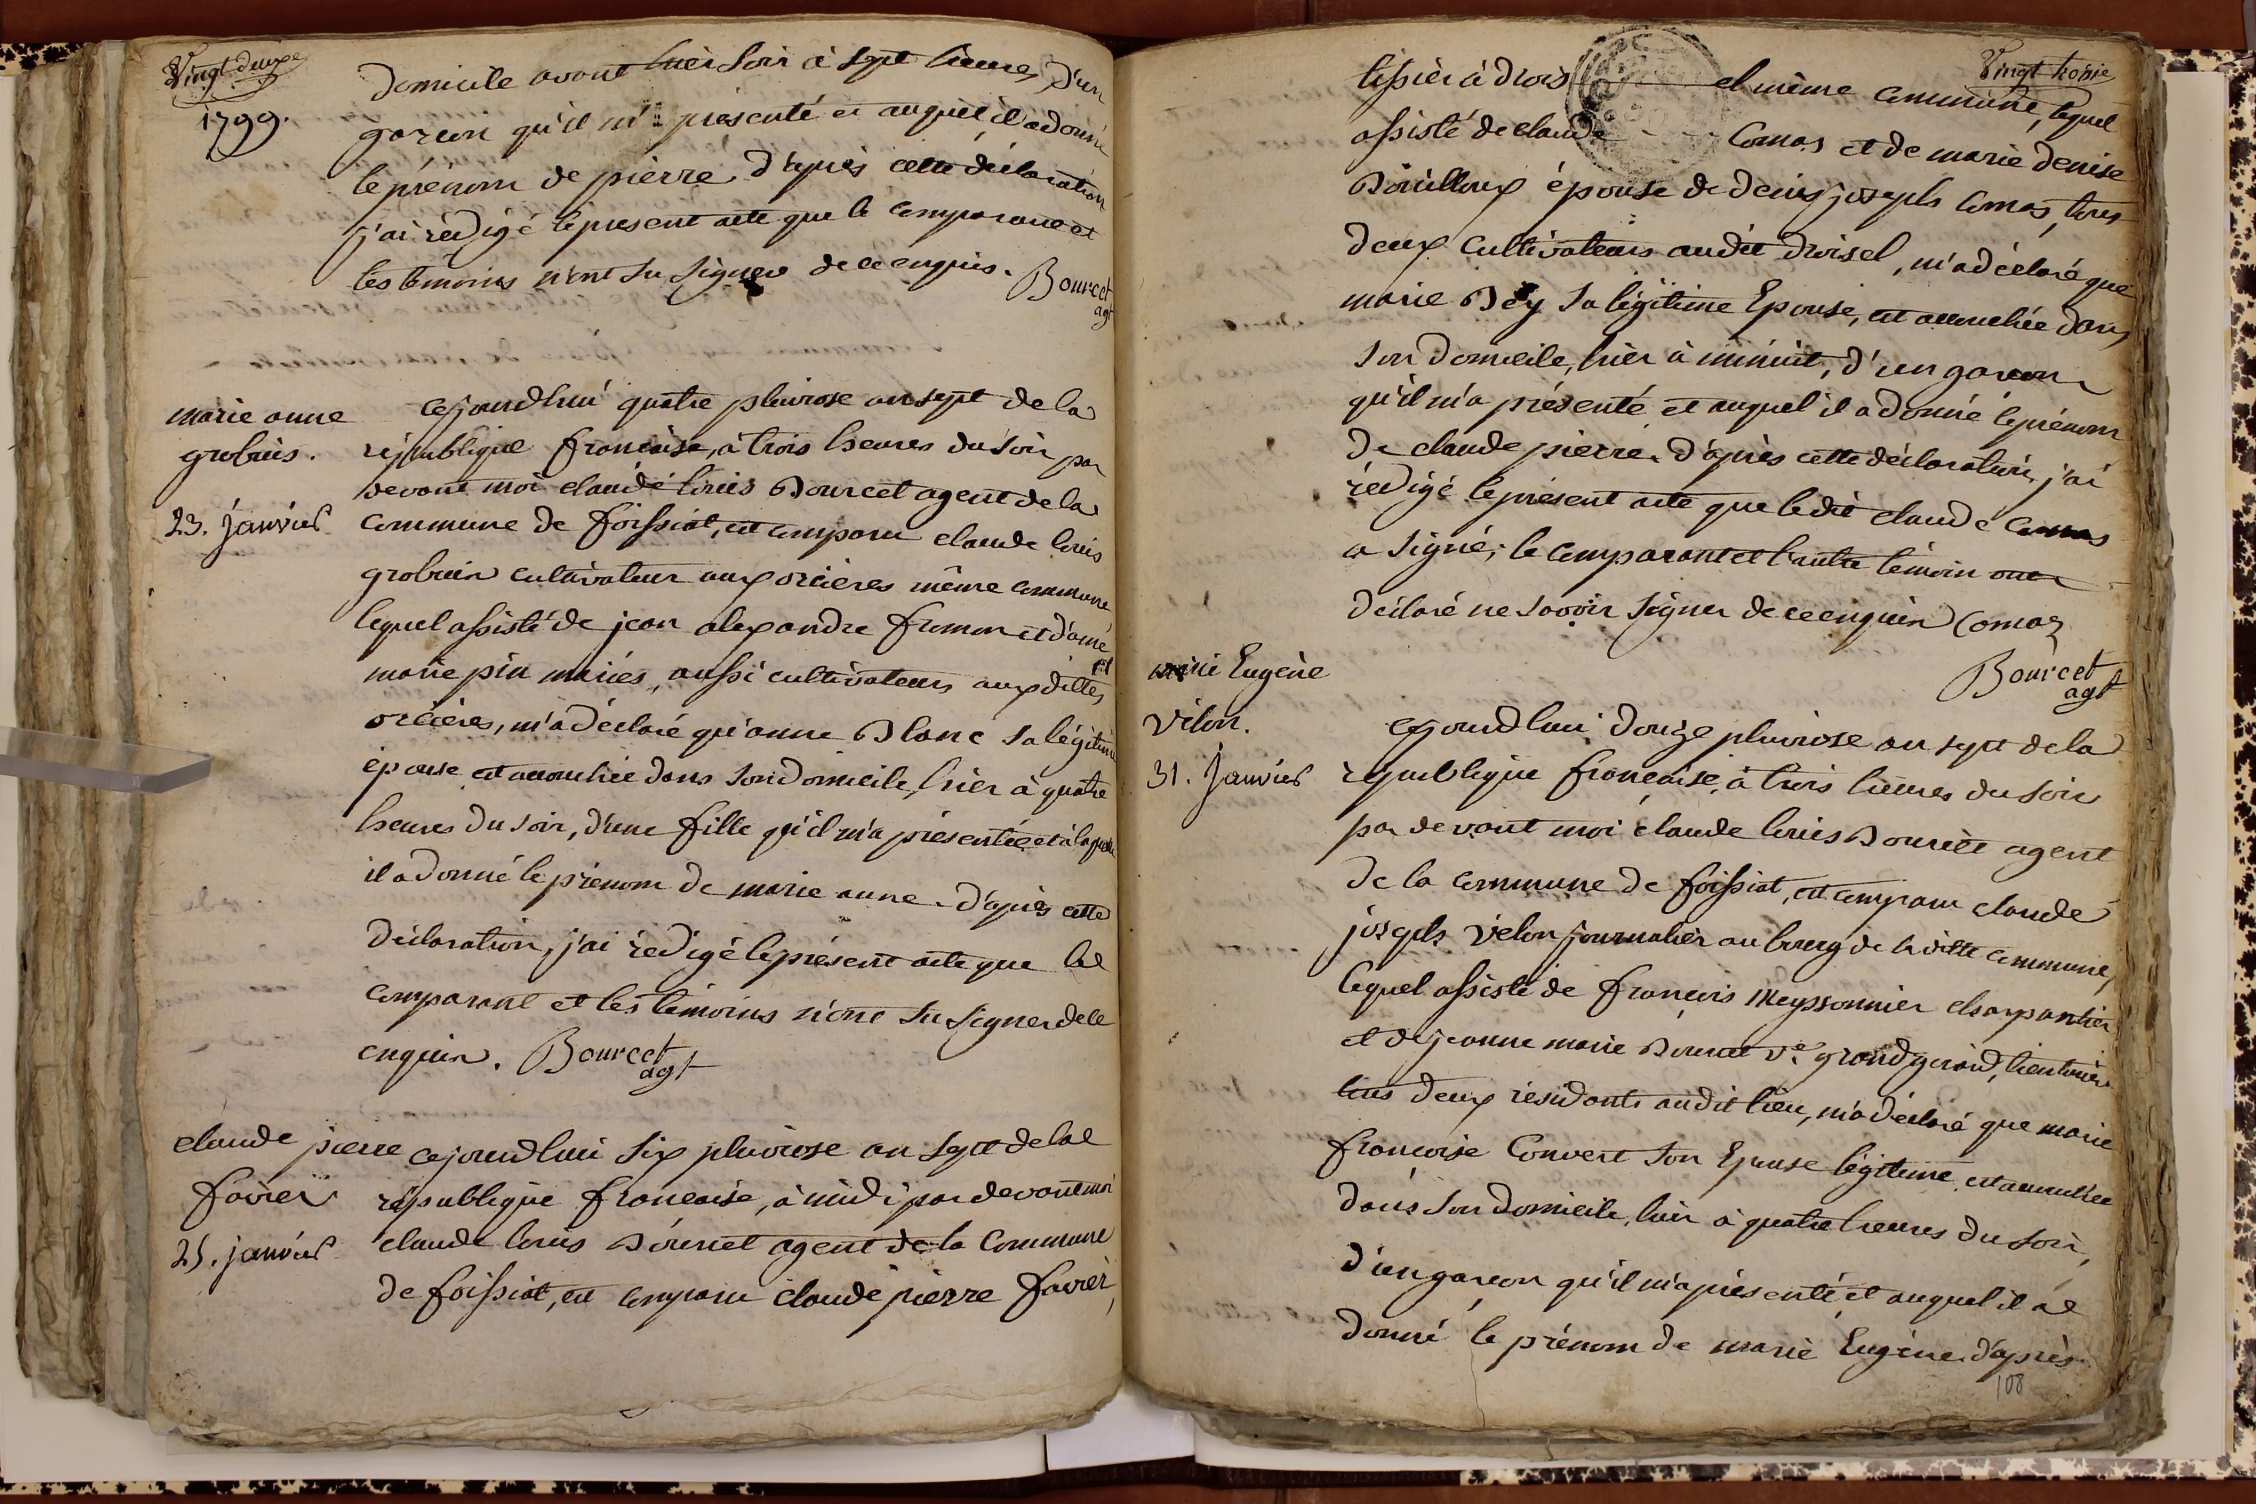 Vingt deuxe
1799.
Domicile avant hier soir à sept heures, d'un
garcon qu'il m'a présenté et auquel il a donné
le prénom de pierre. D'après cette déclaration
j'ai rédigé le présent acte que le comparant et
les témoins n'ont su signer de ce enquis. Bourcet
agt
marie anne
grobuis.
23. janvier
cejourdhui quatre pluviose an sept de la
république francaise, à trois heures du soir par
devant moi claude louis Bourcet agent de la
commune de foissiat, est comparu claude louis
grobuis cultivateur aux orcières même commune
lequel assisté de jean alexandre fromon et d'anne
marie piu mariés, aussi cultivateurs auxdittes
orcières, m'a déclaré qu'anne Blanc sa légitime
épouse est accouchée dans son domicile, hier à quatre
heures du soir, d'une fille qu'il m'a présentée et à laquelle
il a donné le prénom de marie anne. D'après cette
déclaration, j'ai rédigé le présent acte que le
comparant et les témoins n'ont su signer de ce
enquis. Bourcet
agt
claude pierre
favier
25. janvier
cejourdhui six pluviose an sept de la
république francaise, à midi par devant moi
claude louis Bourcet agent de la commune
de foissiat, est comparu claude pierre favier,
Vingt troisie
tissier à droisel même commune, lequel
assisté de claude Comas et de marie denise
Bouilloux épouse de denis joseph comas, tous
deux cultivateurs audit droisel, m'a déclaré que
marie Bey sa légitime Epouse, est accouchée dans
son domicile, hier à minuit, d'un garcon
qu'il m'a présenté et auquel il a donné le prénom
de claude pierre. D'après cette déclaration, j'ai
rédigé le présent acte que ledit claude comas
a signé; le comparant et l'autre témoin ont
déclaré ne savoir signer de ce enquis Comas
Bourcet
agt
marie Eugène
vélon.
31. Janvier
cejourdhui douze pluviose an sept de la
république francaise, à trois heures du soir
par devant moi claude louis Bourcet agent
de la commune de foissiat, est comparu claude
joseph vélon journalier au bourg de laditte commune,
lequel assisté de francois Meyssonnier charpantier
et de jeanne marie Bourcet ve. grandgirard,
tous deux résidants audit lieu, m'a déclaré que marie
francoise Convert son Epouse légitime, est accouchée
dans son domicile, hier à quatre heures du soir,
d'un garcon qu'il m'a présenté, et auquel il a
donné le prénom de marie Eugène. d'après
108